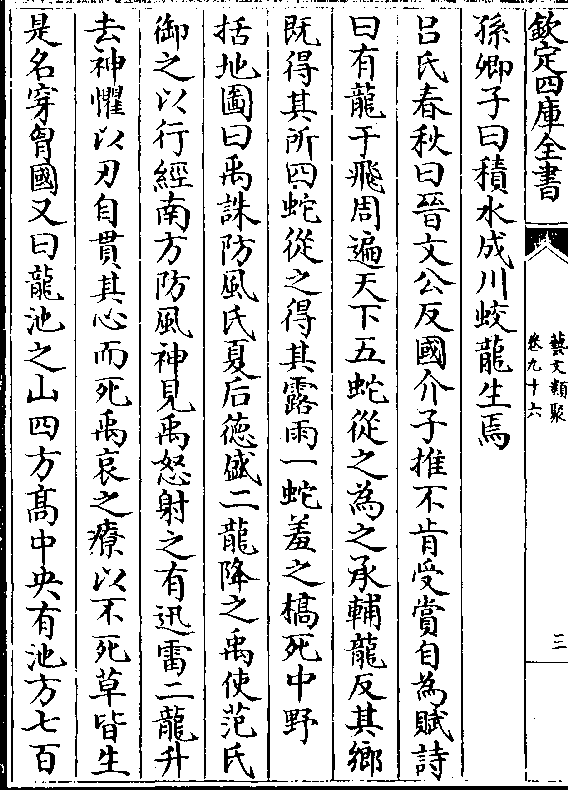 欽定四庫全書
藝文類聚
卷九十六
三
孫卿子曰積水成川蛟龍生焉
吕氏春秋曰晉文公反國介子推不肯受賞自為賦詩
曰有龍干飛周遍天下五蛇從之為之承輔龍反其鄉
既得其所四蛇從之得其露雨一蛇羞之槁死中野
括地圖曰禹誅防風氏夏后德盛二龍降之禹使范氏
御之以行經南方防風神見禹怒射之有迅雷二龍升
去神懼以刃自貫其心而死禹哀之療以不死草皆生
是名穿胷國又曰龍池之山四方髙中央有池方七百